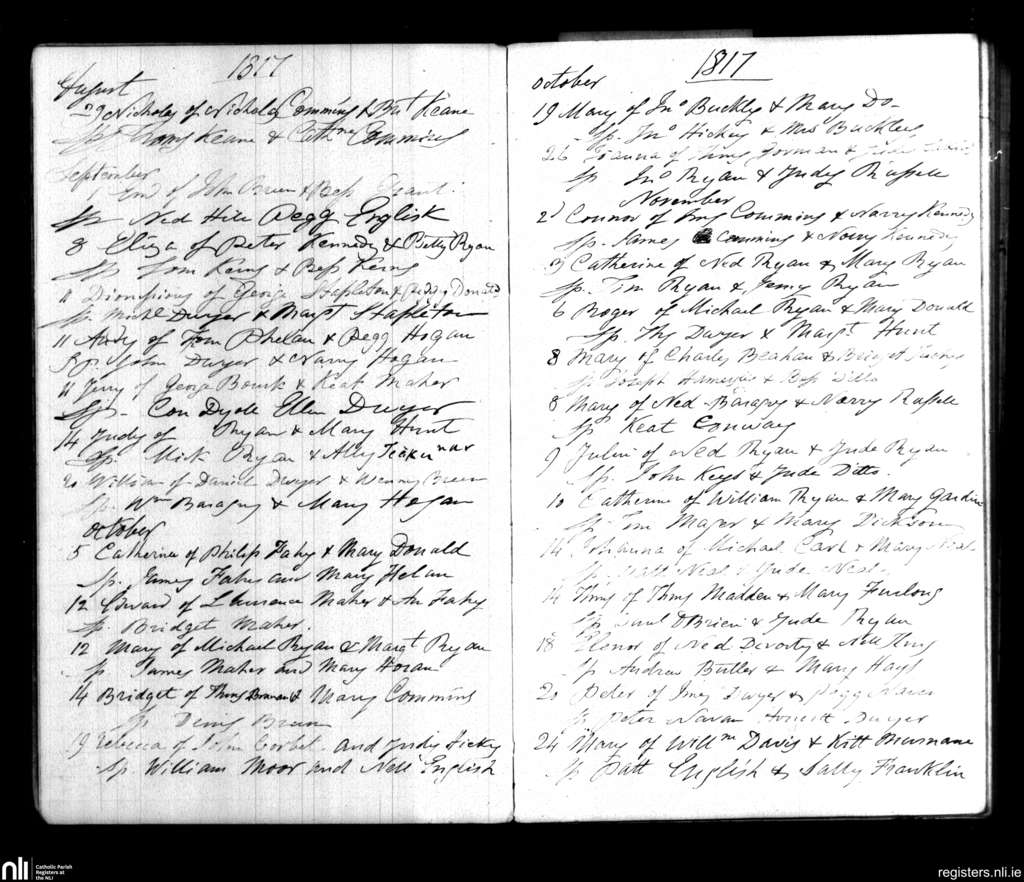 1817
August
29 Nicholas of Nicholas Commins & Keane
Sp Keane & Cath.ne Commins
September
Em.d of John Brien & Bess Grant
Sp Ned Hill Pegg English
8 Eliza of Peter Kennedy & Betty Ryan
Sp Tom Kerns & Bess Kerns
11 Dionysius of George Stapleton & Biddy
Sp. Mich.l Dwyer & Marg.t Stapleton
11 Andy of Tom Phelan & Pegg Hogan
Sp. John Dwyer & Narry Hogan
11 Jerry of George Bourk & Keat Maher
Sp - Con Doyle Ellen Dwyer
14 Judy of Ryan & Mary Hunt
Sp. Mick Ryan & Ally
20 William of Daniel Dwyer & Winny Breen
Sp. W.m Baragry & Mary Hogan
October
5 Catherine of Philip Fahy & Mary Donald
Sp. James Fahy and Mary Helan
12 Edward of Laurence Maher & An Fahy
Sp. Bridget Maher.
12 Mary of Michael Ryan & Marg.t Ryan
Sp James Maher and Mary Horan
14 Bridget of Thms Brenan & Mary Commins
Sp Denis Brien
19 Rebecca of John Corbet and Judy Hicky
Sp. William Moor and Nell English
1817
October
19 Mary of Jno Buckley & Mary Do-
Sp. Jno Hickey & Mrs Buckley
26 Joanna of Thms Gorman &
Sp Jno Ryan & Judy Russell
November
2d Connor of Commins & Narry Kennedy
Sp. James Commins & Narry Kennedy
3 Catherine of Ned Ryan & Mary Ryan
Sp. Tim Ryan & Jenny Ryan
6 Roger of Michael Ryan & Mary Donald
Sp. Thy Dwyer & Marg.t Hunt
8 Mary of Charles Beahan & Bridget
Sp Joseph & Bess Ditto
8 Mary of Ned Baragry & Narry Russell
Sp Keat Conway
9 of Ned Ryan & Jude Ryan
Sp. John Keys & Jude Ditto.
10 Catherine of William Ryan & Mary
Sp. Tim Mager & Mary Dickson
14 Johanna of Michael Carl & Mary Neal
Sp. Matt Neal & Jude Neal
14 Thms of Thms Madden & Mary Furlong
Sp O'Brien & Jude Ryan
18 Elenor of Ned & Nell
Sp Andrew Butler & Mary Hays
20 Peter of Dwyer & Pegg
Sp. Peter Navan Dwyer
24 Mary of Will.m Davis & Kitt Mursnane
Sp Patt English & Sally Franklin
nli
Catholic Parish
Registers at
the NLI
registers.nli.ie